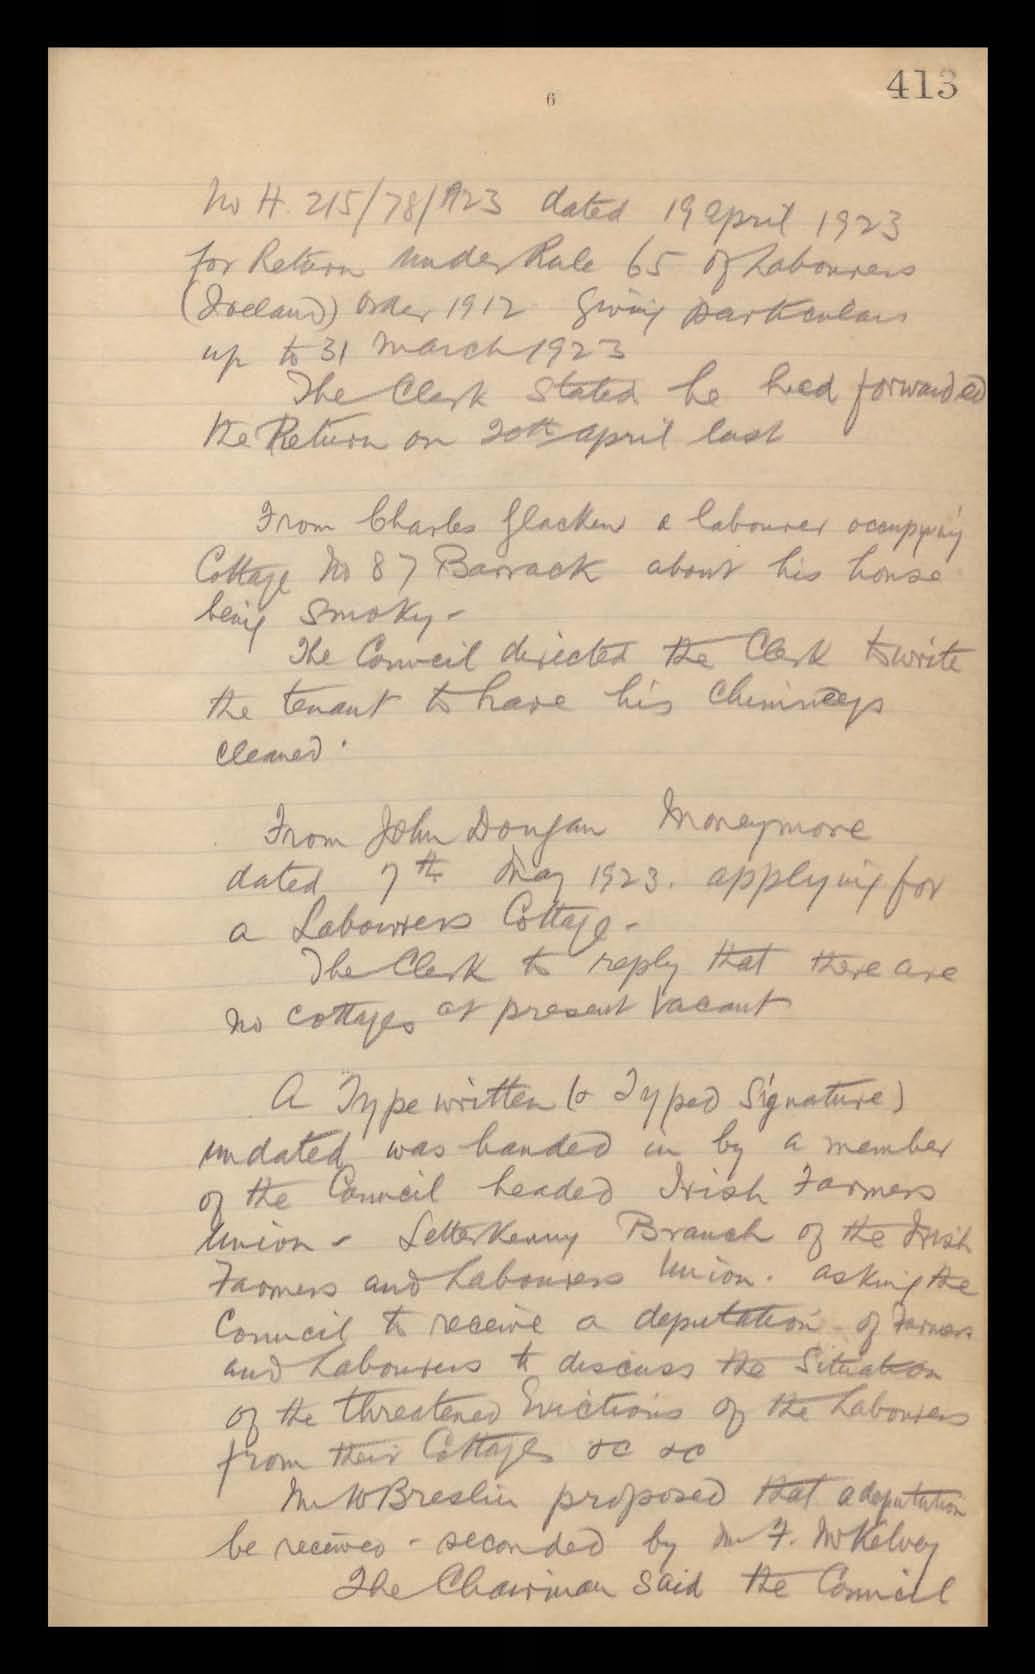 413
6
No H. 215/78/1923 dated 19 april 1923
for Return under Rule 65 of Labourers
(Ireland) Order 1912 giving particulars
up to 31 March 1923
The Clerk stated he had forwarded
the Return on 20th april last
From Charles Glacken a labourer occupying
Cottage No 87 Barrack about his house
being smoky -
The Council directed the Clerk to write
the tenant to have his chimneys
cleaned.
From John Dougan Moneymore
dated 7th May 1923. applying for
a Labourers Cottage -
The Clerk to reply that there are
no cottages at present vacant
A Type written (& Typed Signature)
undated was handed in by a member
of the Council headed Irish Farmers
Union - Letterkenny Branch of the Irish
Farmers and Labourers Union. asking the
Council to receive a deputation - of Farmers
and Labourers to discuss the Situation
of the threatened Evictions of the Labourers
from their Cottages &c &c
Mr W Breslin proposed that a deputation
be received - seconded by Mr F. McKelvey
The Chairman said the Council